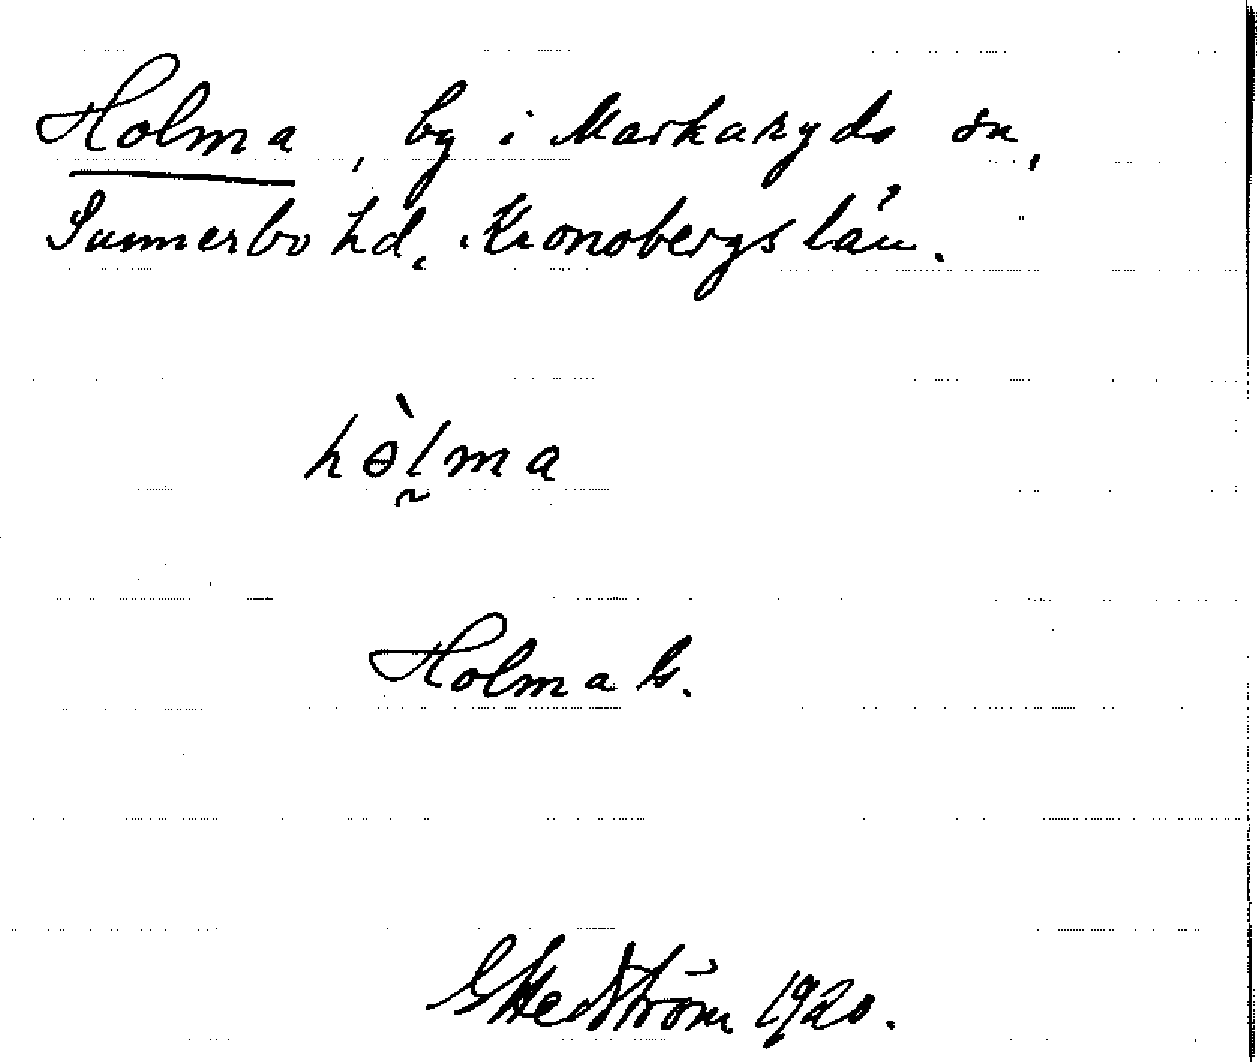 Holma, by i Markaryds sn,
Sunnerbo hd, Kronobergs län.
hə̀l̰ma
Holma G.
G Hedström 1920.